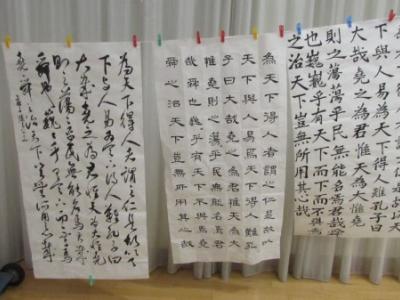 下與人易為天下得人難孔子曰
大哉堯之為君惟天為大惟堯
則之蕩蕩乎民無能名焉君哉舜
也巍巍乎有天下而不與焉堯舜
之治天下豈無所用其心哉
為天下得人者謂之仁是故以
天下與人易爲天下得人難孔
子曰大哉堯之為君惟天為大
惟堯則之蕩蕩乎民無能名焉君
哉舜也巍巍乎有天下而不與焉堯
舜之治天下豈無所用其心哉
為天下得人者謂之仁是故以天
下與人易為天下得人難孔子曰
大哉堯之為君惟天為大惟堯
則之蕩蕩乎民無能名焉君哉
舜也巍巍乎有天下而不與焉
堯舜之治天下豈無所用其心哉